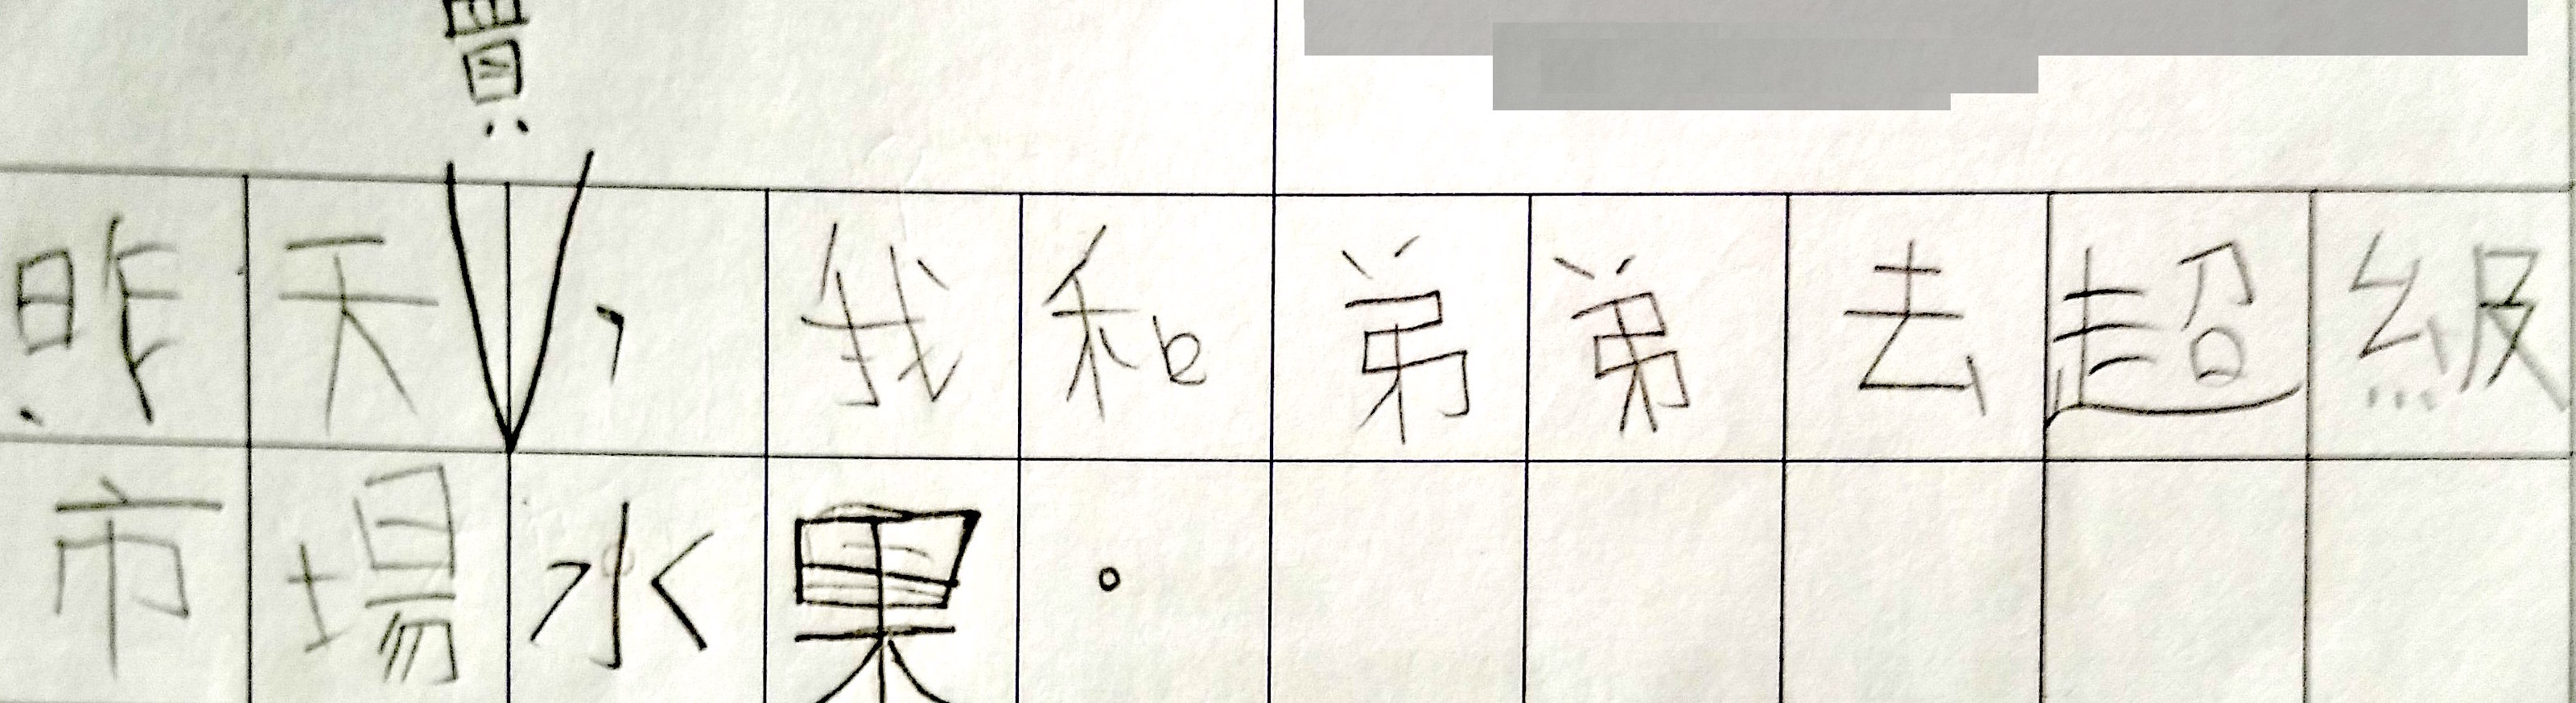 買
昨天，我和弟弟去超級
市場水果。